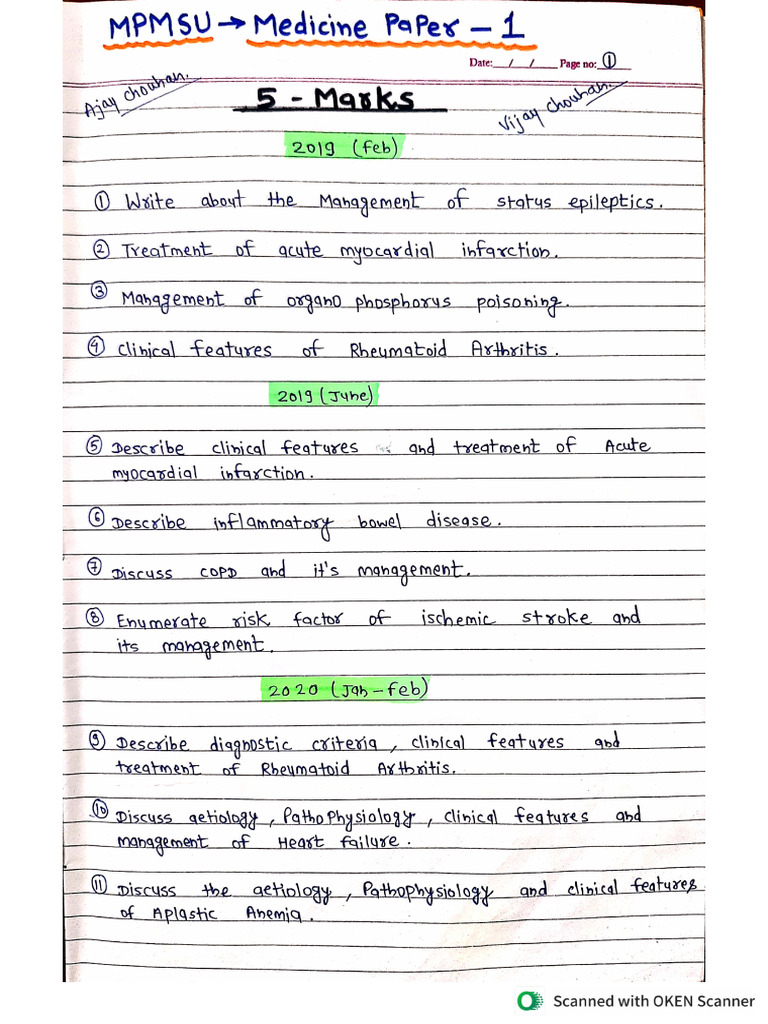 MPMSU → Medicine Paper - 1
Date: __/__/__ Page no: 1
Ajay Chouhan.
5 - Marks
Vijay Chouhan.
2019 (Feb)
① Write about the Management of status epileptics.
② Treatment of acute myocardial infarction.
③ Management of organo phosphorus poisoning.
④ Clinical features of Rheumatoid Arthritis.
2019 (June)
⑤ Describe clinical features and treatment of Acute
myocardial infarction.
⑥ Describe inflammatory bowel disease.
⑦ Discuss COPD and it's management.
⑧ Enumerate risk factor of ischemic stroke and
its management.
2020 (Jan-Feb)
⑨ Describe diagnostic criteria, clinical features and
treatment of Rheumatoid Arthritis.
⑩ Discuss aetiology, PathoPhysiology, clinical features and
management of Heart failure.
⑪ Discuss the aetiology, Pathophysiology and clinical features
of Aplastic Anemia.
Scanned with OKEN Scanner